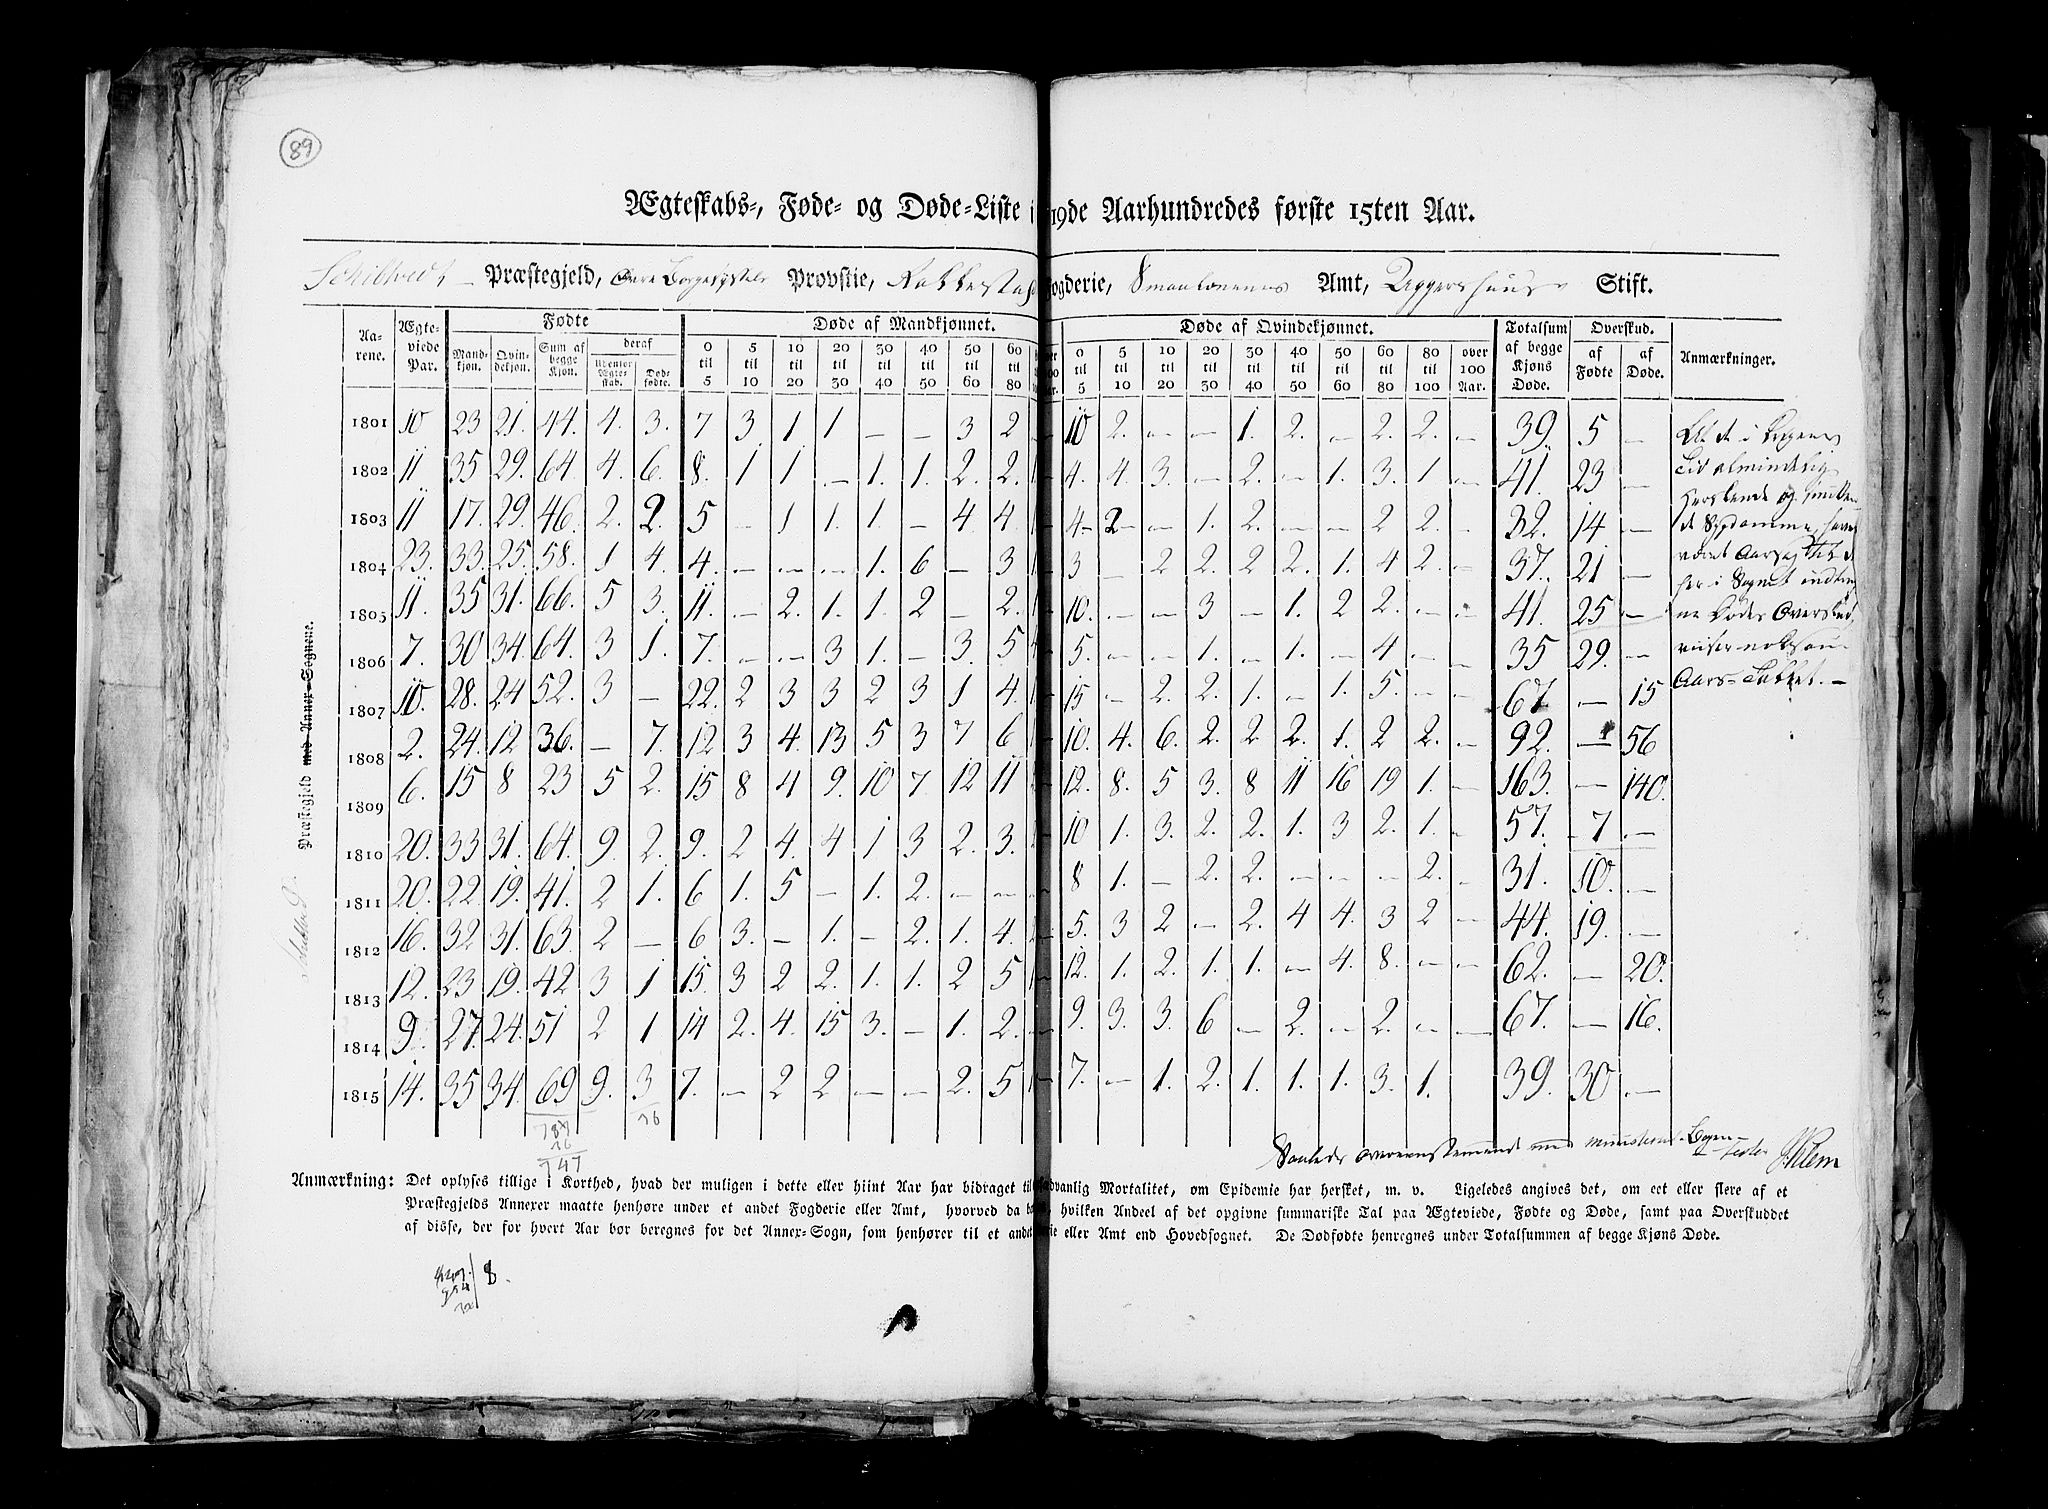 89
Ægteskabs-, Føde- og Døde-Liste i 19de Aarhundredes første 15ten Aar.
Schiltvedt Præstegjeld, Øvre Borgesyssels Provstie, Rakkestad Fogderie, Smaalenenes Amt, Aggershuus Stift.
Præstegjeld med Annex-Sognene.
Aarene. Ægteviede Par. Fødte Døde af Mandkjønnet. Døde af Qvindekjønnet. Totalsum af begge Kjøns Døde. Overskud. Anmærkninger.
Mandkjøn. Qvindekjøn. Sum af begge Kjøn. deraf Udenfor Ægteskab. Dødfødte. af Fødte af Døde.
0 til 5 5 til 10 10 til 20 20 til 30 30 til 40 40 til 50 50 til 60 60 til 80 0 til 5 5 til 10 10 til 20 20 til 30 30 til 40 40 til 50 50 til 60 60 til 80 80 til 100 over 100 Aar.
1801 10 23 21. 44. 4. 3. 7 3 1 1 — — 3 2 10 2. — — 1. 2. — 2. 2. — 39. 5 —
1802 11 35 29. 64. 4. 6. 8. 1 1 — 1. 1. 2. 2. 4. 4 3. — 2. — 1. 3. 1 — 41. 23 —
1803 11 17. 29. 46. 2. 2. 5 — 1 1. 1. — 4 4. 4 2 — 1. 2. — — 2 2. — 32. 14 —
1804 23. 33. 25. 58. 1 4. 4. — — — 1. 6 — 3 3 — 2 2. 2 2. 1. 4 2. — 37. 21 —
1805 11. 35 31. 66. 5 3. 11. — 2. 1. 1. 2 — 2. 10. — — 3 — 1. 2 2. — — 41. 25 —
1806 7. 30 34. 64. 3 1. 7. — — 3 1. — 3. 5 5. — — 1. — 1. — 4 — — 35 29. —
1807 10. 28. 24 52. 3 — 22. 2 3 3 2 3 1 4. 15 — 2. 2. 1. — 1. 5. — — 67. — 15
1808 2. 24. 12 36. — 7. 12 3 4. 13 5 3 7 6 10. 4. 6. 2. 2 2. 1. 2 2. — 92. — 56
1809 6. 15 8 23 5 2. 15 8 4 9. 10 7. 12 11 12. 8. 5 3. 8 11 16 19 1. — 163. — 140.
1810 20. 33 31. 64. 9. 2. 9. 2 4. 4 1 3 2. 3. 10 1. 3. 2. 2. 1. 3 2. 1. — 57. 7 —
1811 20. 22. 19. 41. 2 1. 6 1. 5 — 1. 2. — — 8 1. — 2. 2. — — — 2. — 31. 10. —
1812 16. 32 31. 63. 2 — 6 3. — 1. — 2. 1. 4. 5. 3 2 — 2. 4 4. 3 2 — 44. 19. —
1813 12. 23 19. 42 3 1 15. 3 2 2. 1. 1. 2 5 12. 1. 2. 1. 1. — 4. 8. — — 62. — 20.
1814 9. 27. 24. 51 2 1 14 2. 4. 15 3. — 1. 2. 9. 3. 3. 6 — 2. — 2. — — 67. — 16.
1815 14. 35 34. 69 9. 3 7. — 2 2. — — 2. 5 7. — 1. 2. 1. 1. 1. 3. 1. 39. 30 —
36
747
At de i Krigens
Tid almindelig
herskende og smitten-
de Sygdomme, have
været Aarsag til de
her i Sognet indtruf-
ne Dødes Overskud,
viiser noksom
Aars-Tallet. —
Saaledes overeensstemmende med Ministerial-Bogen
Anmærkning: Det oplyses tillige i Korthed, hvad der muligen i dette eller hiint Aar har bidraget til usædvanlig Mortalitet, om Epidemie har hersket, m. v. Ligeledes angives det, om eet eller flere af et
Præstegjelds Annexer maatte henhøre under et andet Fogderie eller Amt, hvorved da , hvilken Andeel af det opgivne summariske Tal paa Ægteviede, Fødte og Døde, samt paa Overskuddet
af disse, der for hvert Aar bør beregnes for det Annex-Sogn, som henhører til et andet eller Amt end Hovedsognet. De Dødfødte henregnes under Totalsummen af begge Kjøns Døde.
8.